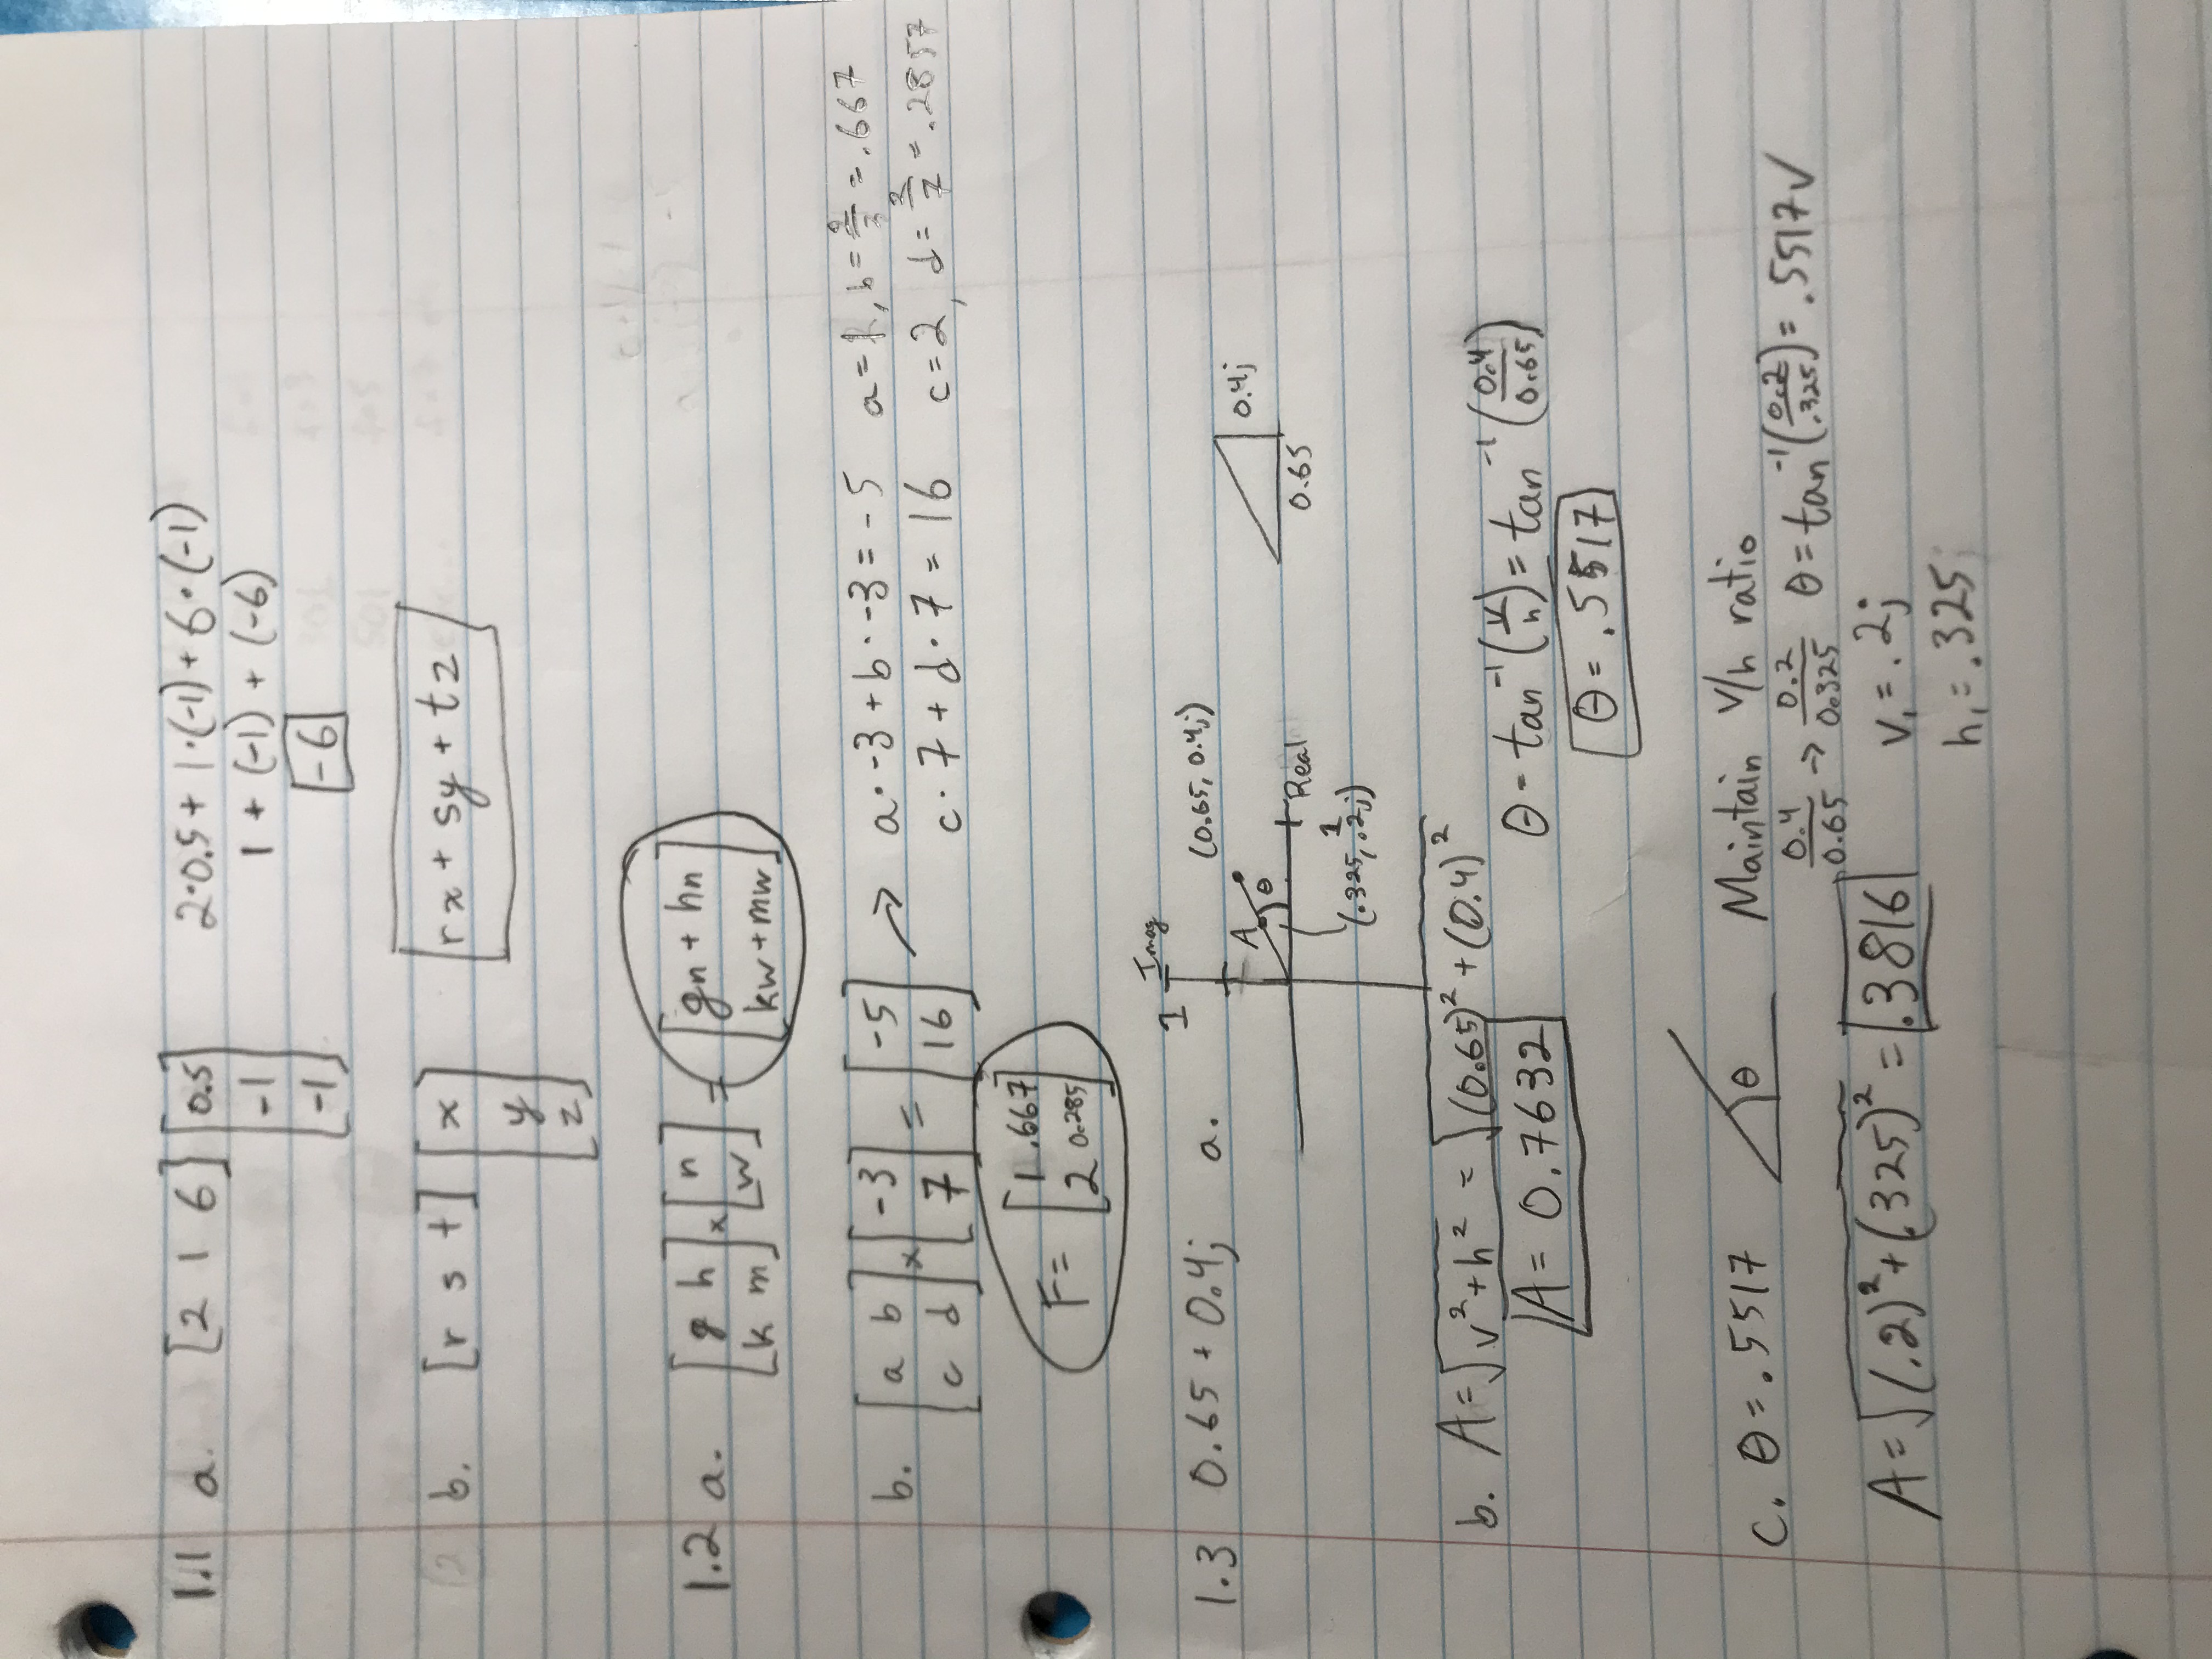 1.1 a. [2 1 6] [0.5 -1 -1] 2·0.5 + 1·(-1) + 6·(-1)
1 + (-1) + (-6)
-6
b. [r s t] [x y z] rx + sy + tz
1.2 a. [g h k m] × [n w] = [gn + hn kw + mw]
b. [a b c d] × [-3 7] = [-5 16] → a·-3 + b·-3 = -5 a=1, b=2/3=.667
c·7 + d·7 = 16 c=2, d=2/7=.2857
F= [1 .667 2 0.285]
1.3 0.65 + 0.4j a.
1 Imag
(0.65, 0.4j)
A θ
Real
1
(.325, .2j)
0.4j
0.65
b. A = √v²+h² = √(0.65)² + (0.4)²
A = 0.7632
θ = tan⁻¹(v/h) = tan⁻¹(0.4/0.65)
θ = .5517
c. θ = .5517 θ Maintain v/h ratio
0.4/0.65 → 0.2/0.325 θ = tan⁻¹(0.2/.325) = .5517 ✓
A = √(.2)² + (.325)² = .3816
v₁ = .2j
h₁ = .325